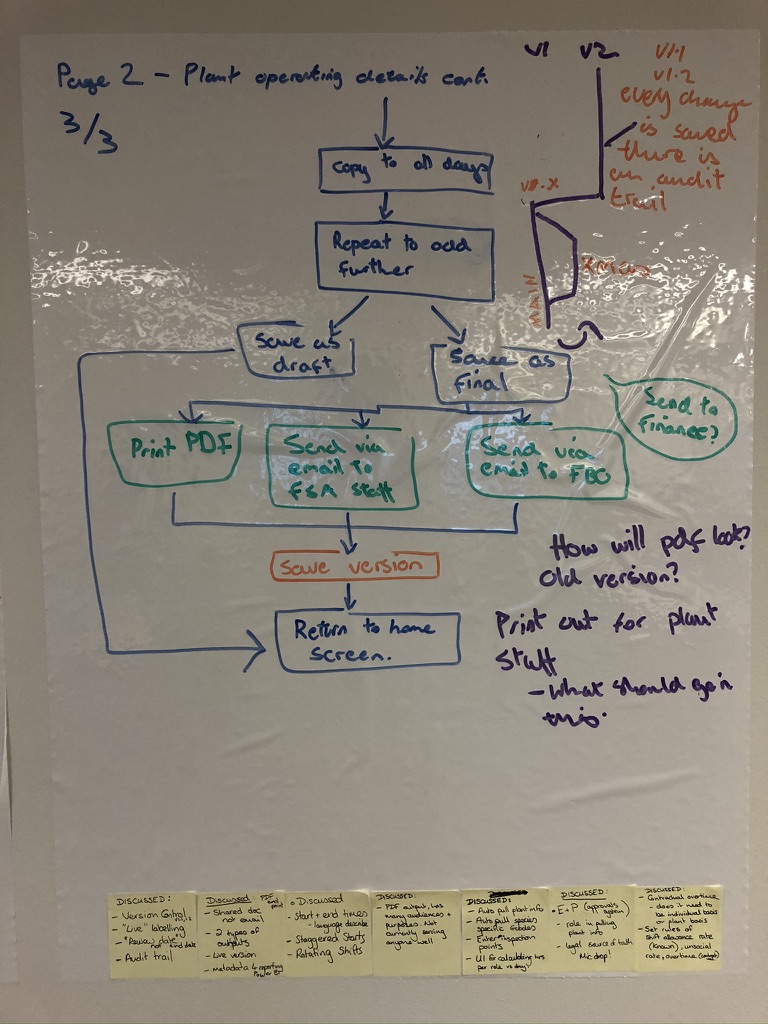 Page 2 - Plant operating details cont.
3/3
Copy to all days
Repeat to add
further
Save as
draft
Save as
Final
Print PDF
Send via
email to
FSA staff
Send via
email to FBO
Send to
finance?
Save version
Return to home
screen.
V1 V2
V1.1
V1.2
every change
is saved
there is
an audit
trail
MAIN
How will pdf look?
Old version?
Print out for plant
staff
- What should go in
this.
DISCUSSED:
- Version Control
- "Live" labelling
- "Review date"
not end date
- Audit trail
Discussed: PDF
and print
- Shared doc
not email
- 2 types of
outputs
- Live version
- metadata 4 reporting
Power BI
Discussed
- Start + end times
- language describe
- Staggered Starts
- Rotating Shifts
DISCUSSED:
- PDF output, has
many audiences +
purposes. Not
currently serving
anyone well
DISCUSSED:
- Auto pull plant info
- Auto pull species
specific codes
- Enter inspection
points
- UI for calculating hrs
per role vs day?
DISCUSSED:
- E+P (approvals
system)
role in pulling
plant info
- legal source of truth
Mic drop!
DISCUSSED:
- Contractual overtime
- does it need to
be individual basis
or plant basis
- Set rules of
shift allowance rate
(known), unsocial
rate, overtime